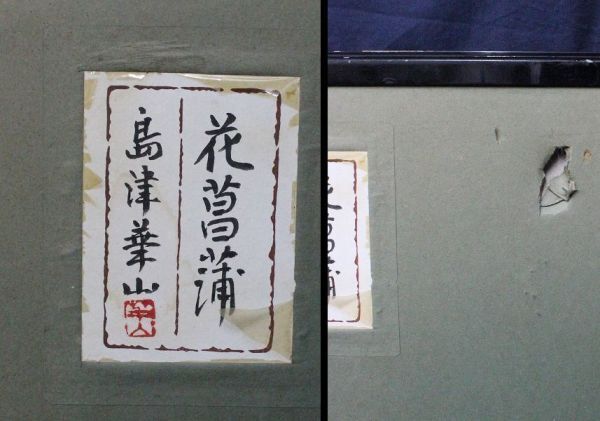 花菖蒲
島津華山
華山
菖蒲